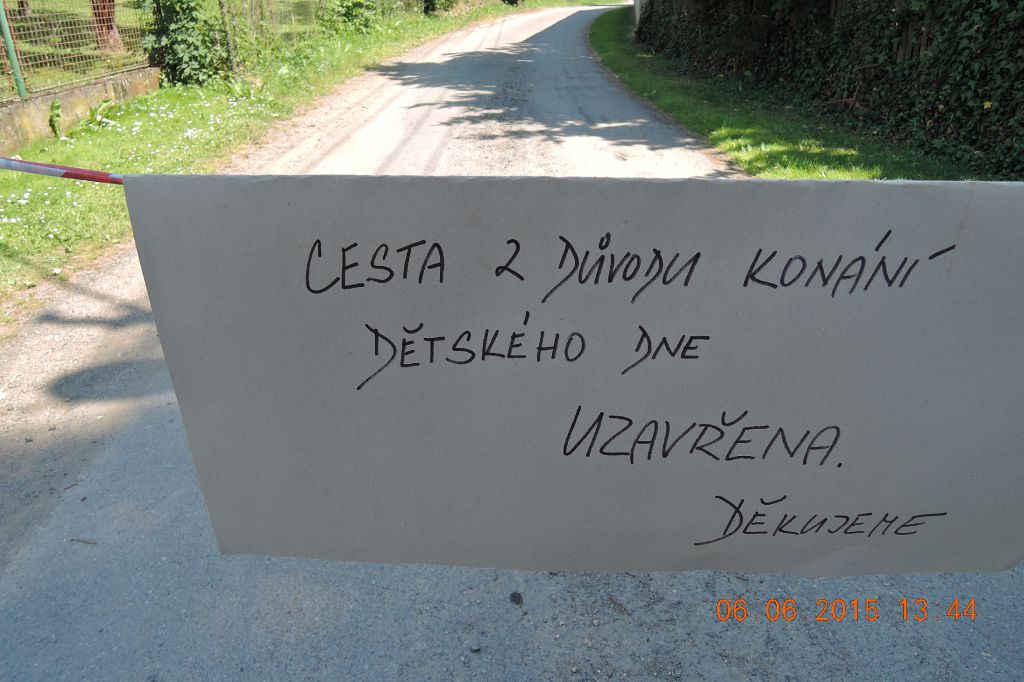 CESTA Z DŮVODU KONÁNÍ
DĚTSKÉHO DNE
UZAVŘENA.
DĚKUJEME
06.06.2015 13:44